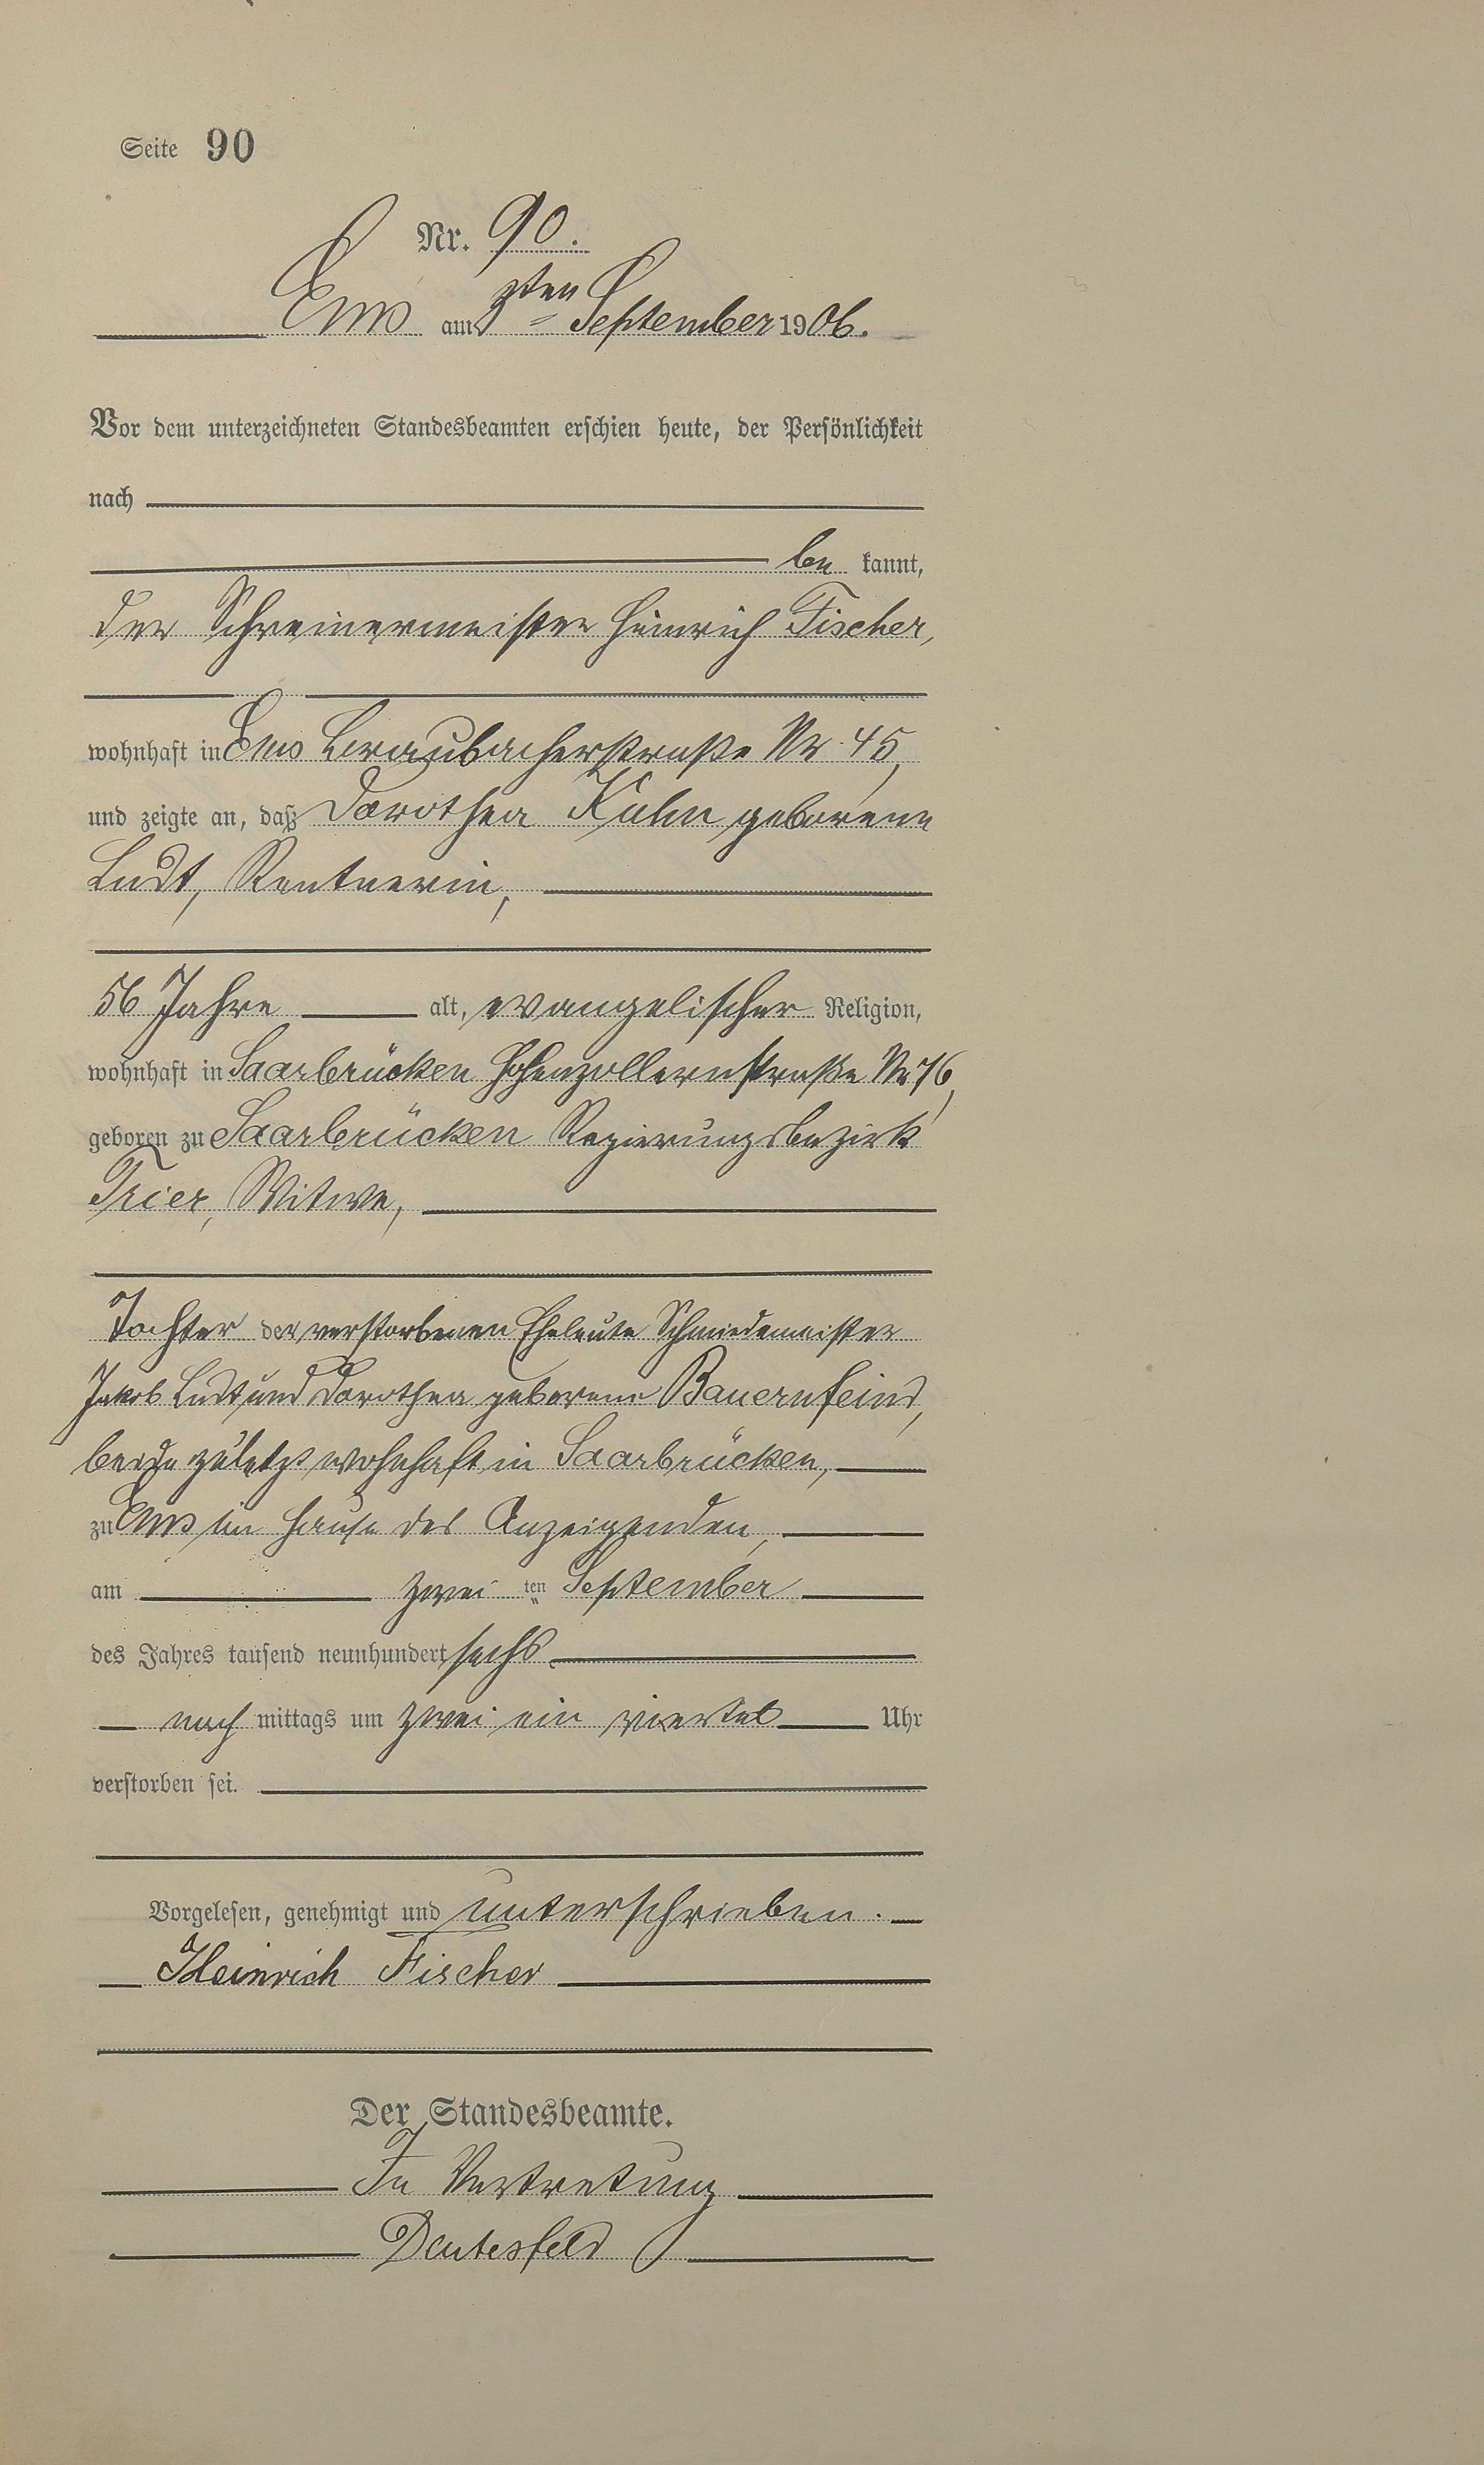 Seite 90
Nr. 90.
Ems am 3ten September 1906.
Vor dem unterzeichneten Standesbeamten erschien heute, der Persönlichkeit
nach
be kannt,
der Schreinermeister Heinrich Fischer,
wohnhaft in Ems Braubacherstraße Nr. 45,
und zeigte an, daß Dorothea Kuhn geborene
Ludt, Rentnerin,
56 Jahre alt, evangelischer Religion,
wohnhaft in Saarbrücken Hohenzollernstraße Nr 76,
geboren zu Saarbrücken Regierungsbezirk
Trier, Witwe,
Tochter der verstorbenen Eheleute Schmiedemeister
Jakob Ludt und Dorothea geborene Bauernfeind,
beide zuletzt wohnhaft in Saarbrücken,
zu Ems im Hause des Anzeigenden,
am zwei ten September
des Jahres tausend neunhundert sechs
nach mittags um zwei ein viertel Uhr
verstorben sei.
Vorgelesen, genehmigt und unterschrieben.
Heinrich Fischer
Der Standesbeamte.
In Vertretung
Deutesfeld